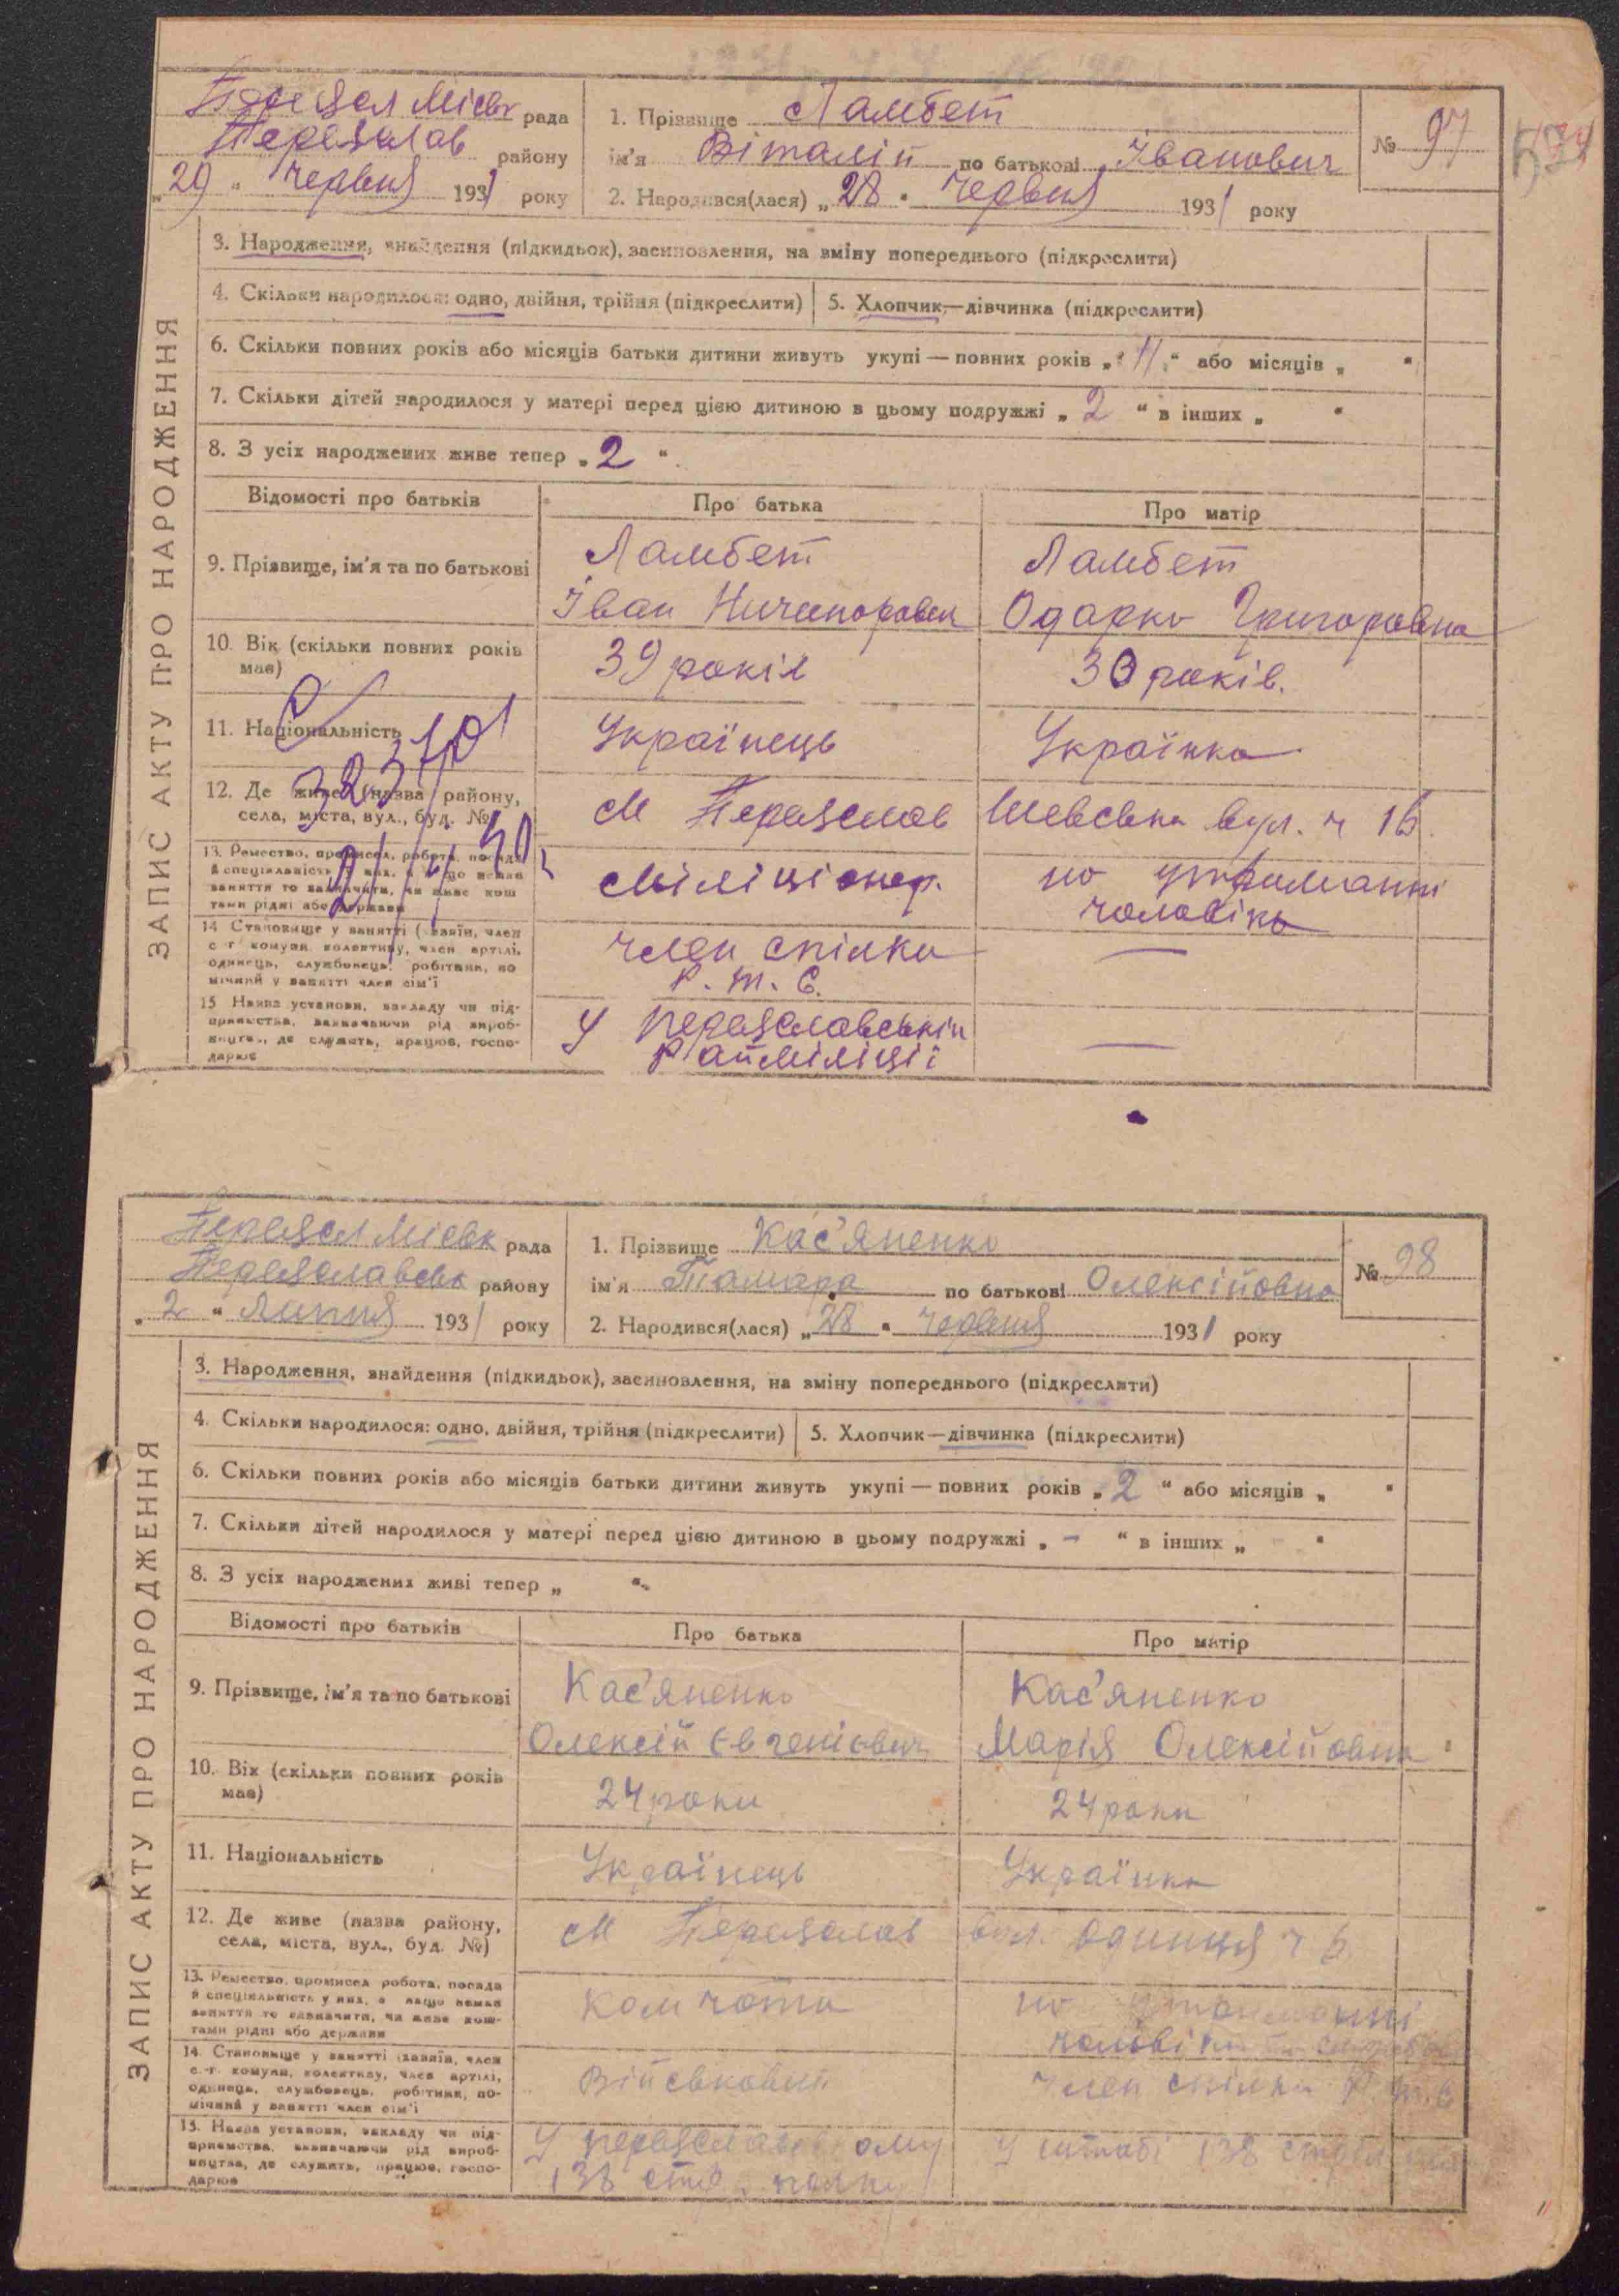 Переяслав Міськ рада
Переяслав району
„29“ червня 1931 року
1. Прізвище Ламбет
ім'я Віталій по батькові Іванович
2. Народився(лася) „28“ червня 1931 року
№ 97
ЗАПИС АКТУ ПРО НАРОДЖЕННЯ
3. Народження, знайдення (підкидьок), засиновлення, на зміну попереднього (підкреслити)
4. Скільки народилося: одно, двійня, трійня (підкреслити)
5. Хлопчик—дівчинка (підкреслити)
6. Скільки повних років або місяців батьки дитини живуть укупі — повних років „11“ або місяців „ “
7. Скільки дітей народилося у матері перед цією дитиною в цьому подружжі „2“ в інших „ “
8. З усіх народжених живе тепер „2“.
Відомості про батьків
Про батька
Про матір
9. Прізвище, ім'я та по батькові
Ламбет
Іван Ничипорович
Ламбет
Одарка Григоровна
10. Вік (скільки повних років
має)
39 років
30 років.
11. Національність
Українець
Українка
12. Де живе (назва району,
села, міста, вул., буд. №)
м Переяслав
Шевська вул. ч 16.
13. Ремество, промисел, робота, посада
й спеціяльність у них, а якщо немає
заняття то зазначити, чи живе кош
тами рідні або держави
Міліціонер.
на утриманні
чоловіка
14 Становище у занятті (хазяїн, член
с.-г. комуни, колективу, член артілі,
одинець, службовець, робітник, по
мічний у занятті член сім'ї
член спілки
Р. Т. С.
15 Назва установи, закладу чи під-
приємства, зазначаючи рід вироб-
ництва, де служить, працює, госпо-
дарює
У переяславській
Райміліції
Переясл Міськ рада
Переяславськ району
„2“ Липня 1931 року
1. Прізвище Кас'яненко
ім'я Тамара по батькові Олексійовна
2. Народився(лася) „28“ червня 1931 року
№ 98
ЗАПИС АКТУ ПРО НАРОДЖЕННЯ
3. Народження, знайдення (підкидьок), засиновлення, на зміну попереднього (підкреслити)
4. Скільки народилося: одно, двійня, трійня (підкреслити)
5. Хлопчик—дівчинка (підкреслити)
6. Скільки повних років або місяців батьки дитини живуть укупі — повних років „2“ або місяців „ “
7. Скільки дітей народилося у матері перед цією дитиною в цьому подружжі „–“ в інших „ “
8. З усіх народжених живі тепер „ “.
Відомості про батьків
Про батька
Про матір
9. Прізвище, ім'я та по батькові
Кас'яненко
Олексій Євгенієвич
Кас'яненко
Марія Олексійовна
10. Вік (скільки повних років
має)
24 роки
24 роки
11. Національність
Українець
Українка
12. Де живе (назва району,
села, міста, вул., буд. №)
м Переяслав
вул. Одинця ч 6
13. Ремество, промисел робота, посада
й спеціяльність у них, а якщо немає
заняття то зазначити, чи живе кош-
тами рідні або держави
Ком чоти
на утриманні
14. Становище у занятті (хазяїн, член
с.-г. комуни, колективу, член артілі,
одинець, службовець, робітник, по-
мічний у занятті член сім'ї
Військовий
член спілки Р. Т. С
15. Назва установи, закладу чи під-
приємства, зазначаючи рід вироб-
ництва, де служить, працює, госпо-
дарює
У переяславському
138 стр. полку
У штабі 138 стріл